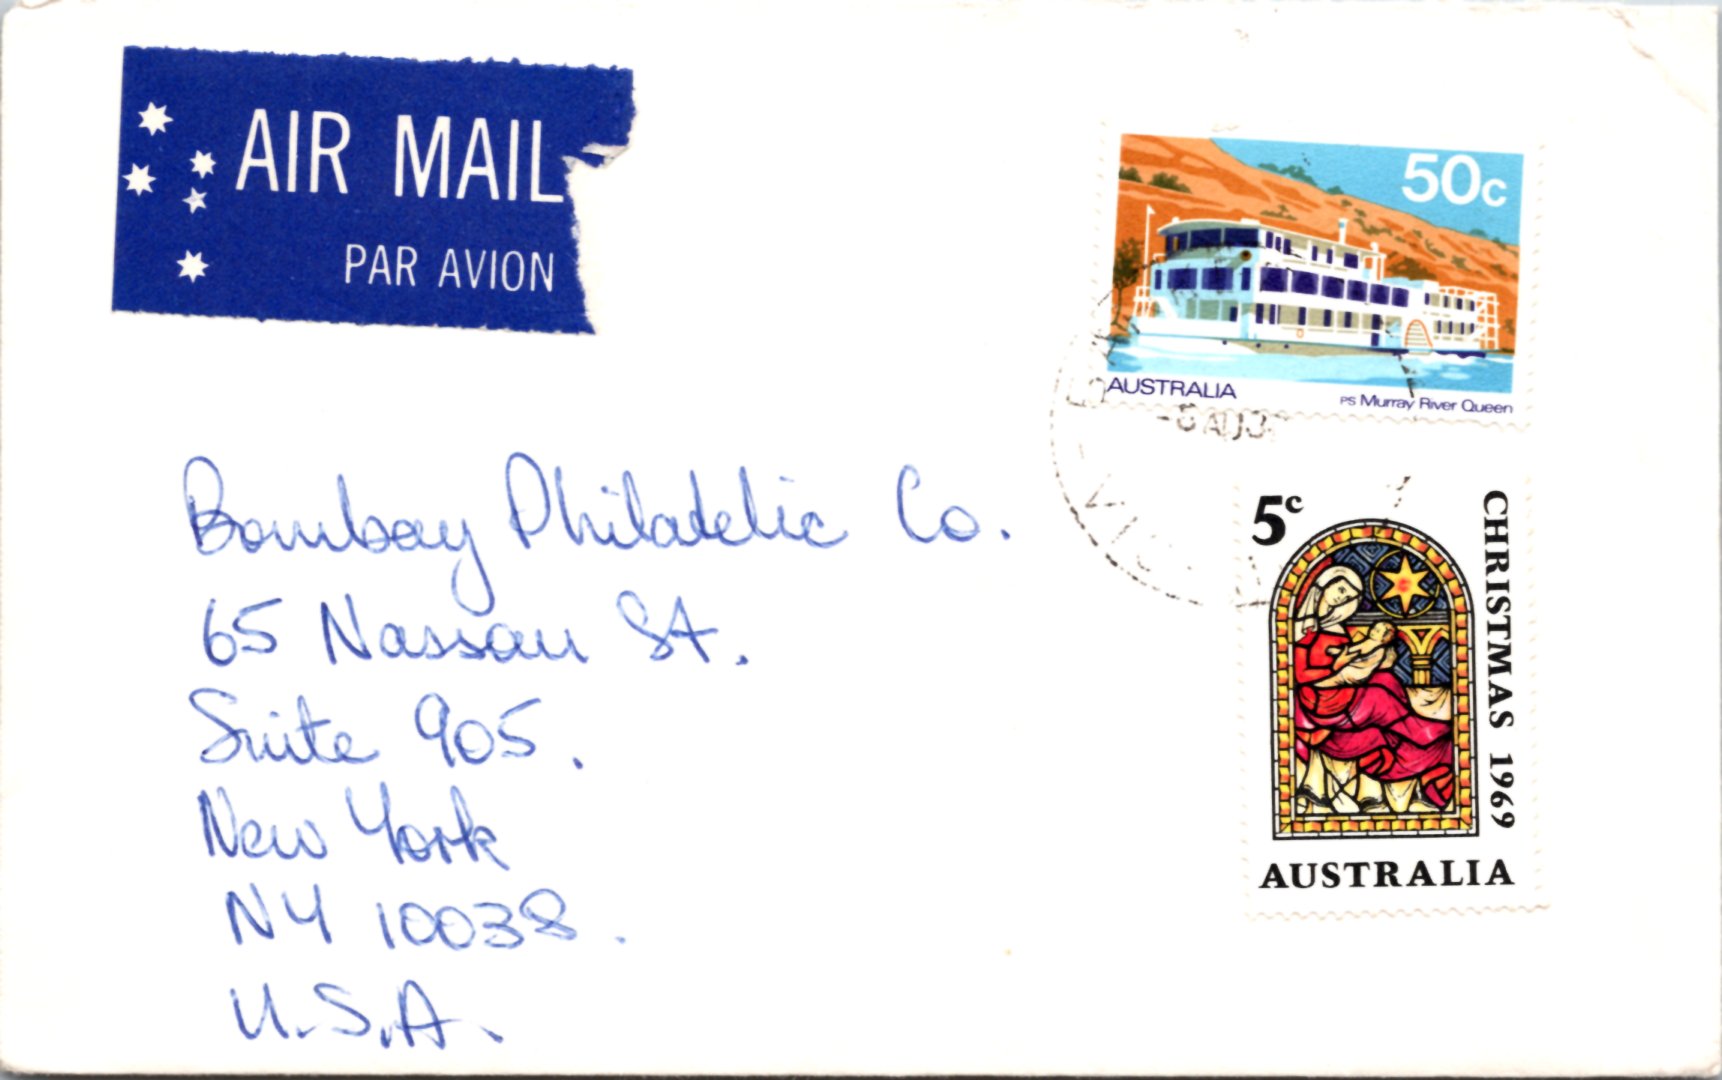 AIR MAIL
PAR AVION
50c
AUSTRALIA
PS Murray River Queen
5c
CHRISTMAS 1969
AUSTRALIA
Bombay Philatelic Co.
65 Nassau St.
Suite 905.
New York
NY 10038.
U.S.A.